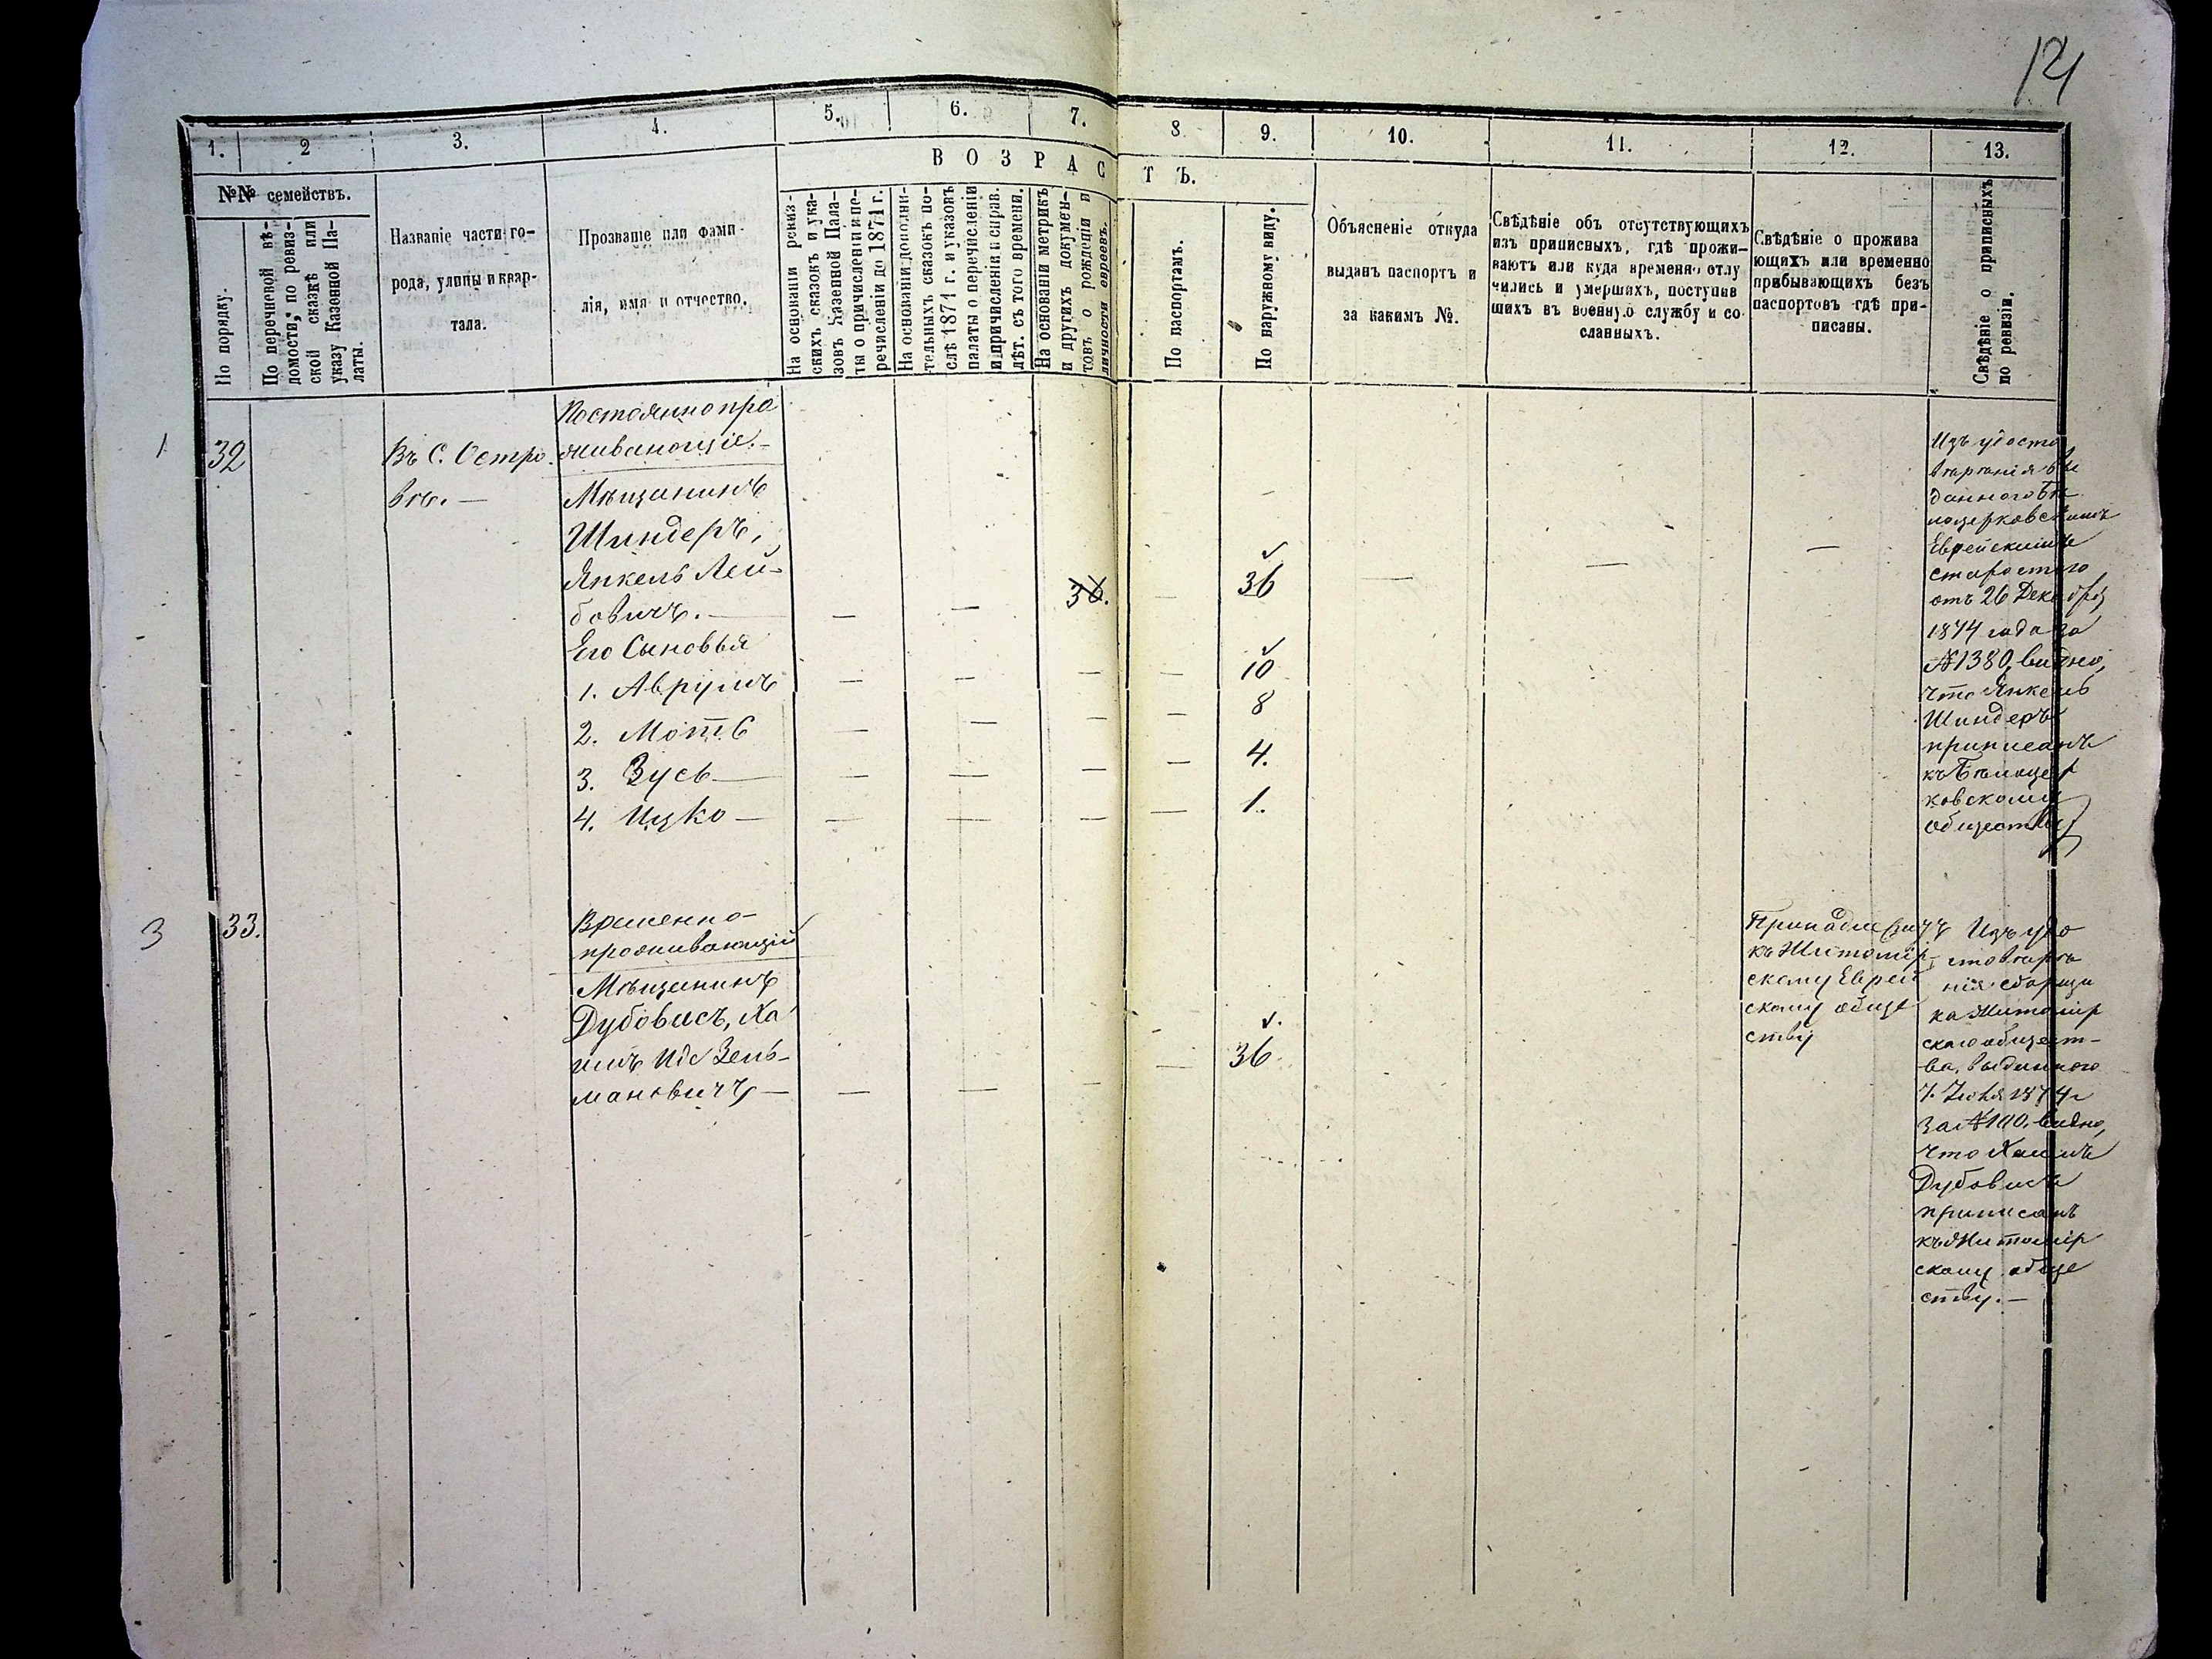 14
1. 2 3. 4. 5. 6. 7. 8 9. 10. 11. 12. 13.
№№ семействъ.
ВОЗРАСТЪ.
По порядку.
По перечневой вѣ-
домости, по ревиз-
ской сказкѣ или
указу Казенной Па-
латы.
Названіе части го-
рода, улицы и квар-
тала.
Прозваніе или фами-
лія, имя и отчество.
На основаніи ревиз-
скихъ сказокъ и ука-
зовъ Казенной Пала-
ты о причисленіи и пе-
речисленіи до 1871 г.
На основаніи дополни-
тельныхъ сказокъ по-
слѣ 1871 г. и указовъ
палаты о перечисленіи
и причисленіи и справ.
лѣт. съ того времени.
На основаніи метрикъ
и другихъ докумен-
товъ о рожденіи и
личности евреевъ.
По паспортамъ.
По наружному виду.
Объясненіе откуда
выданъ паспортъ и
за какимъ №.
Свѣдѣніе объ отсутствующихъ
изъ приписныхъ, гдѣ прожи-
ваютъ или куда временно отлу
чились и умершихъ, поступив
шихъ въ военную службу и со
сланныхъ.
Свѣдѣніе о прожива
ющихъ или временно
прибывающихъ безъ
паспортовъ гдѣ при-
писаны.
Свѣдѣніе о приписныхъ
по ревизіи.
1
32
Въ С. Остро-
вѣ. —
Постоянно про
живающіе. —
Мѣщанинъ
Шиндеръ,
Янкель Лей-
бовичъ. — — — 30. — 36 — — —
Его Сыновья
1. Аврумъ — — — — 10
2. Моть — — — — 8
3. Зусь — — — — — 4.
4. Ицко — — — — — 1.
Изъ удосто
вѣренія вы
даннаго Бѣ
лоцерковскимъ
Еврейскимъ
старостою
отъ 26 Декабря
1874 года за
№1380, видно,
что Янкель
Шиндеръ
приписанъ
къ Бѣлоцер
ковскому
обществу
3
33.
Временно-
проживающій
Мѣщанинъ
Дубовисъ, Ха
имъ Идс Зель-
мановичъ — — — — — 36
Принадлежитъ
къ Житомір-
скому Еврей
скому обще
ству
Изъ удо
стовѣре
нія сборщи
ка Житомір
скаго общест-
ва, выданнаго
7. Іюня 1874 г
за №100, видно,
что Хаимъ
Дубовисъ
приписанъ
къ Житомір
скому обще
ству. —